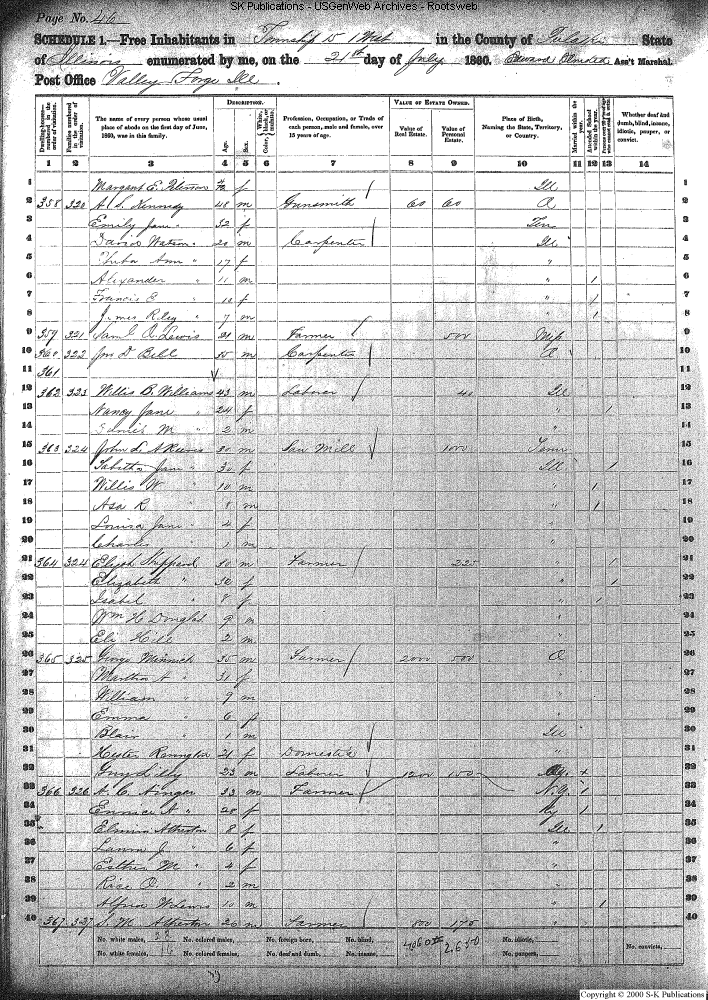 SK Publications - USGenWeb Archives - Rootsweb
Page No. 46
SCHEDULE 1.—Free Inhabitants in Township 15 1 West in the County of Pulaski State
of Illinois enumerated by me, on the 21st day of July 1860. Edward Olmsted Ass't Marshal.
Post Office Valley Forge Ill.
Dwelling-houses— numbered in the order of visitation.
Families numbered in the order of visitation.
The name of every person whose usual place of abode on the first day of June, 1860, was in this family.
DESCRIPTION.
Age. Sex. Color, White, black, or mulatto.
Profession, Occupation, or Trade of each person, male and female, over 15 years of age.
VALUE OF ESTATE OWNED.
Value of Real Estate. Value of Personal Estate.
Place of Birth, Naming the State, Territory, or Country.
Married within the year. Attended School within the year.
Whether deaf and dumb, blind, insane, idiotic, pauper, or convict.
1 2 3 4 5 6 7 8 9 10 11 12 13 14
1 Margaret E. f Ill 1
2 358 320 A. L. Kennedy 48 m Gunsmith 60 60 O 2
3 Emily Jane " 32 f Ten 3
4 David Watson " 20 m Carpenter Ill 4
5 Ann " 17 f " 5
6 Alexander " 11 m " 1 6
7 Francis E " f " 1 7
8 James Riley " 7 m " 1 8
9 359 321 Saml R. Lewis 21 m Farmer 500 9
10 360 322 Jno D. Bell 35 m Carpenter O 10
11 361 11
12 362 323 Willis B. Williams 43 m Laborer 40 Ill 12
13 Nancy Jane " 24 f " 1 13
14 M " 2 m " 14
15 363 324 John L. 30 m Saw Mill 1000 Tenn 15
16 Tabitha Jane " 30 f Ill 1 16
17 Willis W " 10 m " 1 17
18 Asa R " 8 m " 1 18
19 Louisa Jane " 4 f " 19
20 Charles " 1 m " 20
21 364 324 Elijah Sheppard 30 m Farmer 225 " 1 21
22 Elizabeth " 30 f " 1 22
23 Isabel " 8 f " 1 23
24 Wm H Douglas 9 m " 24
25 Eli Hile 2 m " 25
26 365 325 George Minnich 35 m Farmer 2000 500 O 26
27 Martha A " 31 f " 27
28 William " 9 m " 28
29 Emma " 6 f " 29
30 Blair " 1 m Ill 30
31 Hester 21 f Domestic " 31
32 Guy Lilly 23 m Laborer 1200 32
33 366 326 A. C. 33 m Farmer N.Y. 1 33
34 A " 28 f Ky 1 34
35 Atherton 8 f Ill 1 35
36 Laura J. " 6 f " 36
37 Esther M " 4 f " 37
38 Rice O. " 2 m " 38
39 Alfred W Lewis 10 m " 1 39
40 367 327 J. M. Atherton 20 m Farmer 800 175 " 40
No. white males, No. colored males, No. foreign born, No. blind, No. idiotic,
No. white females, No. colored females, No. deaf and dumb, No. insane, No. paupers, No. convicts,
Copyright © 2000 S-K Publications